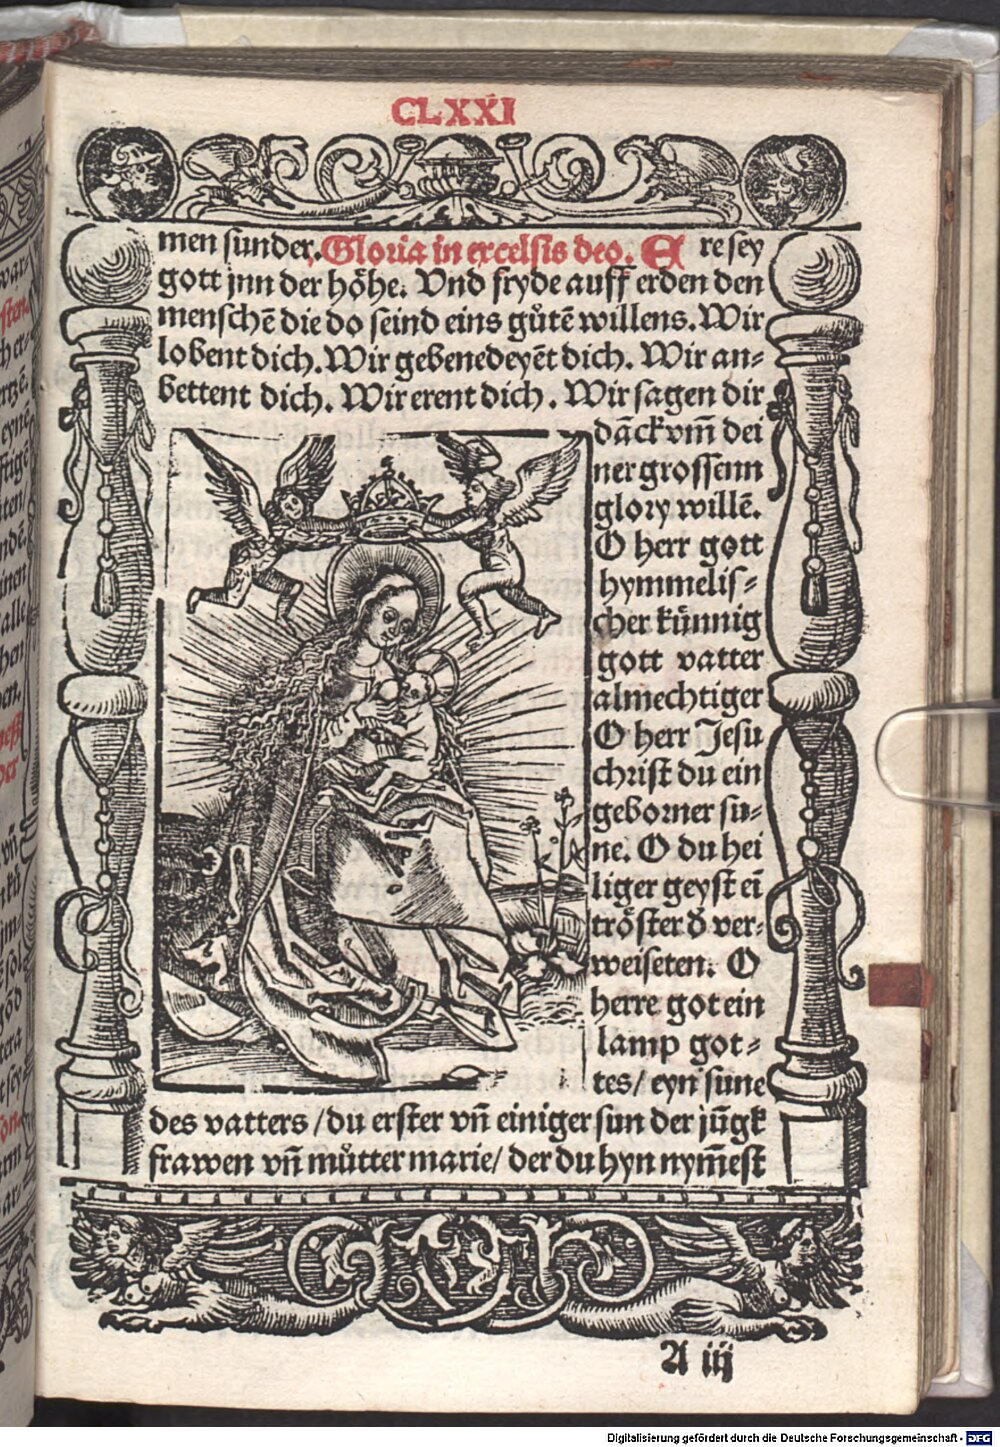 CLXXI
men sunder. Gloria in excelsis deo. E re sey
gott jnn der höhe. Vnd fryde auff erden den
menschē die do seind eins gůtē willens. Wir
lobent dich. Wir gebenedeyēt dich. Wir an⸗
bettent dich. Wir erent dich. Wir sagen dir
dāck vm̄ dei
ner grossenn
glory willē.
O herr gott
hymmelis⸗
cher künnig
gott vatter
almechtiger
O herr Jesu
christ du ein
geborner su⸗
ne. O du hei
liger geyst eī
tröster d̄ ver⸗
weiseten. O
herre got ein
lamp got⸗
tes/ eyn sune
des vatters /du erster vn̄ einiger sun der jūgk
frawen vn̄ můtter marie/ der du hyn nym̄est
A iij
Digitalisierung gefördert durch die Deutsche Forschungsgemeinschaft - DFG